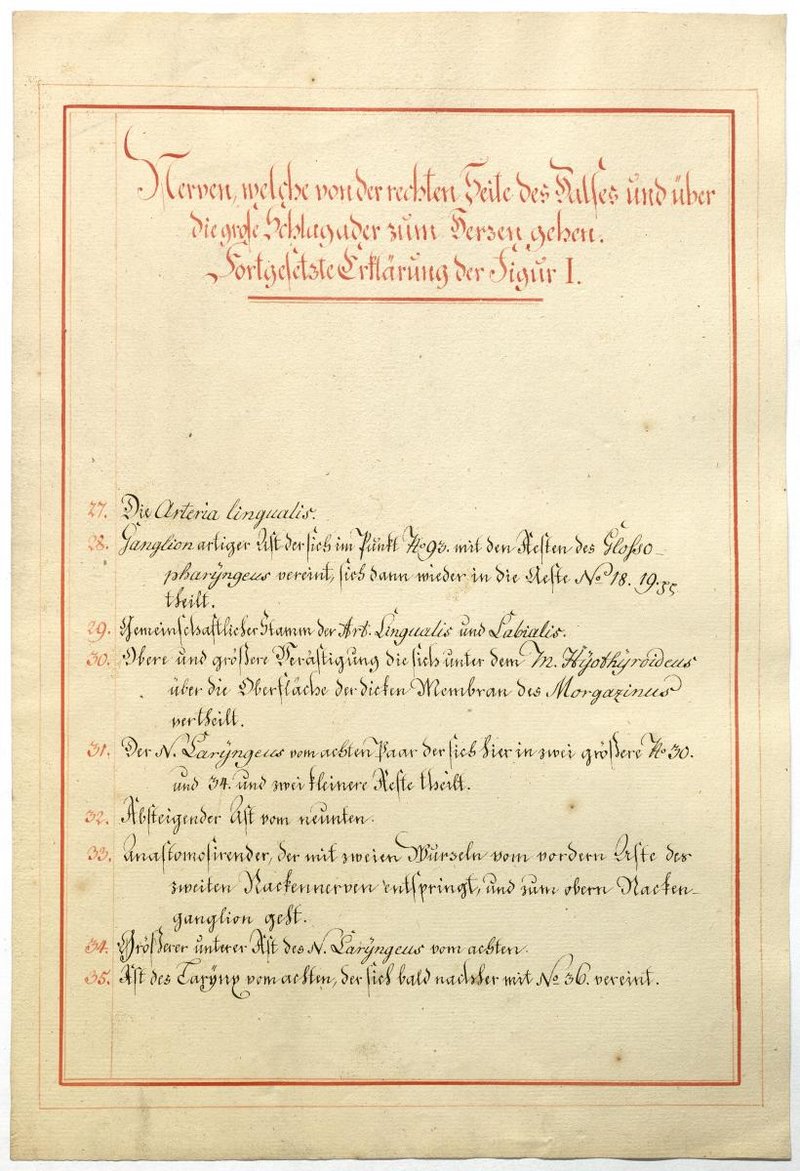 Nerven, welche von der rechten Seite des Halses und über
die große Schlagader zum Herzen gehen.
Fortgesetzte Erklärung der Figur I.
27. Die Arteria lingualis.
28. Ganglion artiger Ast der sich im Punkt No 93. mit den Aesten des Glosso-
pharÿngeus vereint, sich dann wieder in die Aeste No 18. 19. 55
theilt.
29. Gemeinschaftlicher Stamm der Art: Lingualis und Labialis.
30. Obere und größere Verästigung die sich unter dem M. Hÿothÿroideus
über die Oberfläche der dicken Membran des Morgazinus
vertheilt.
31. Der N. Larÿngeus vom achten Paar der sich hier in zwei größere No 30.
und 34. und zwei kleinere Aeste theilt.
32. Absteigender Ast vom neunten.
33. Anastomosirender, der mit zweien Wurzeln vom vordern Aste des
zweiten Nackennerven entspringt, und zum obern Nacken-
ganglion geht.
34. Größerer unterer Ast des N. Larÿngeus vom achten.
35. Ast des Larÿnx vom achten, der sich bald nachher mit No 36. vereint.